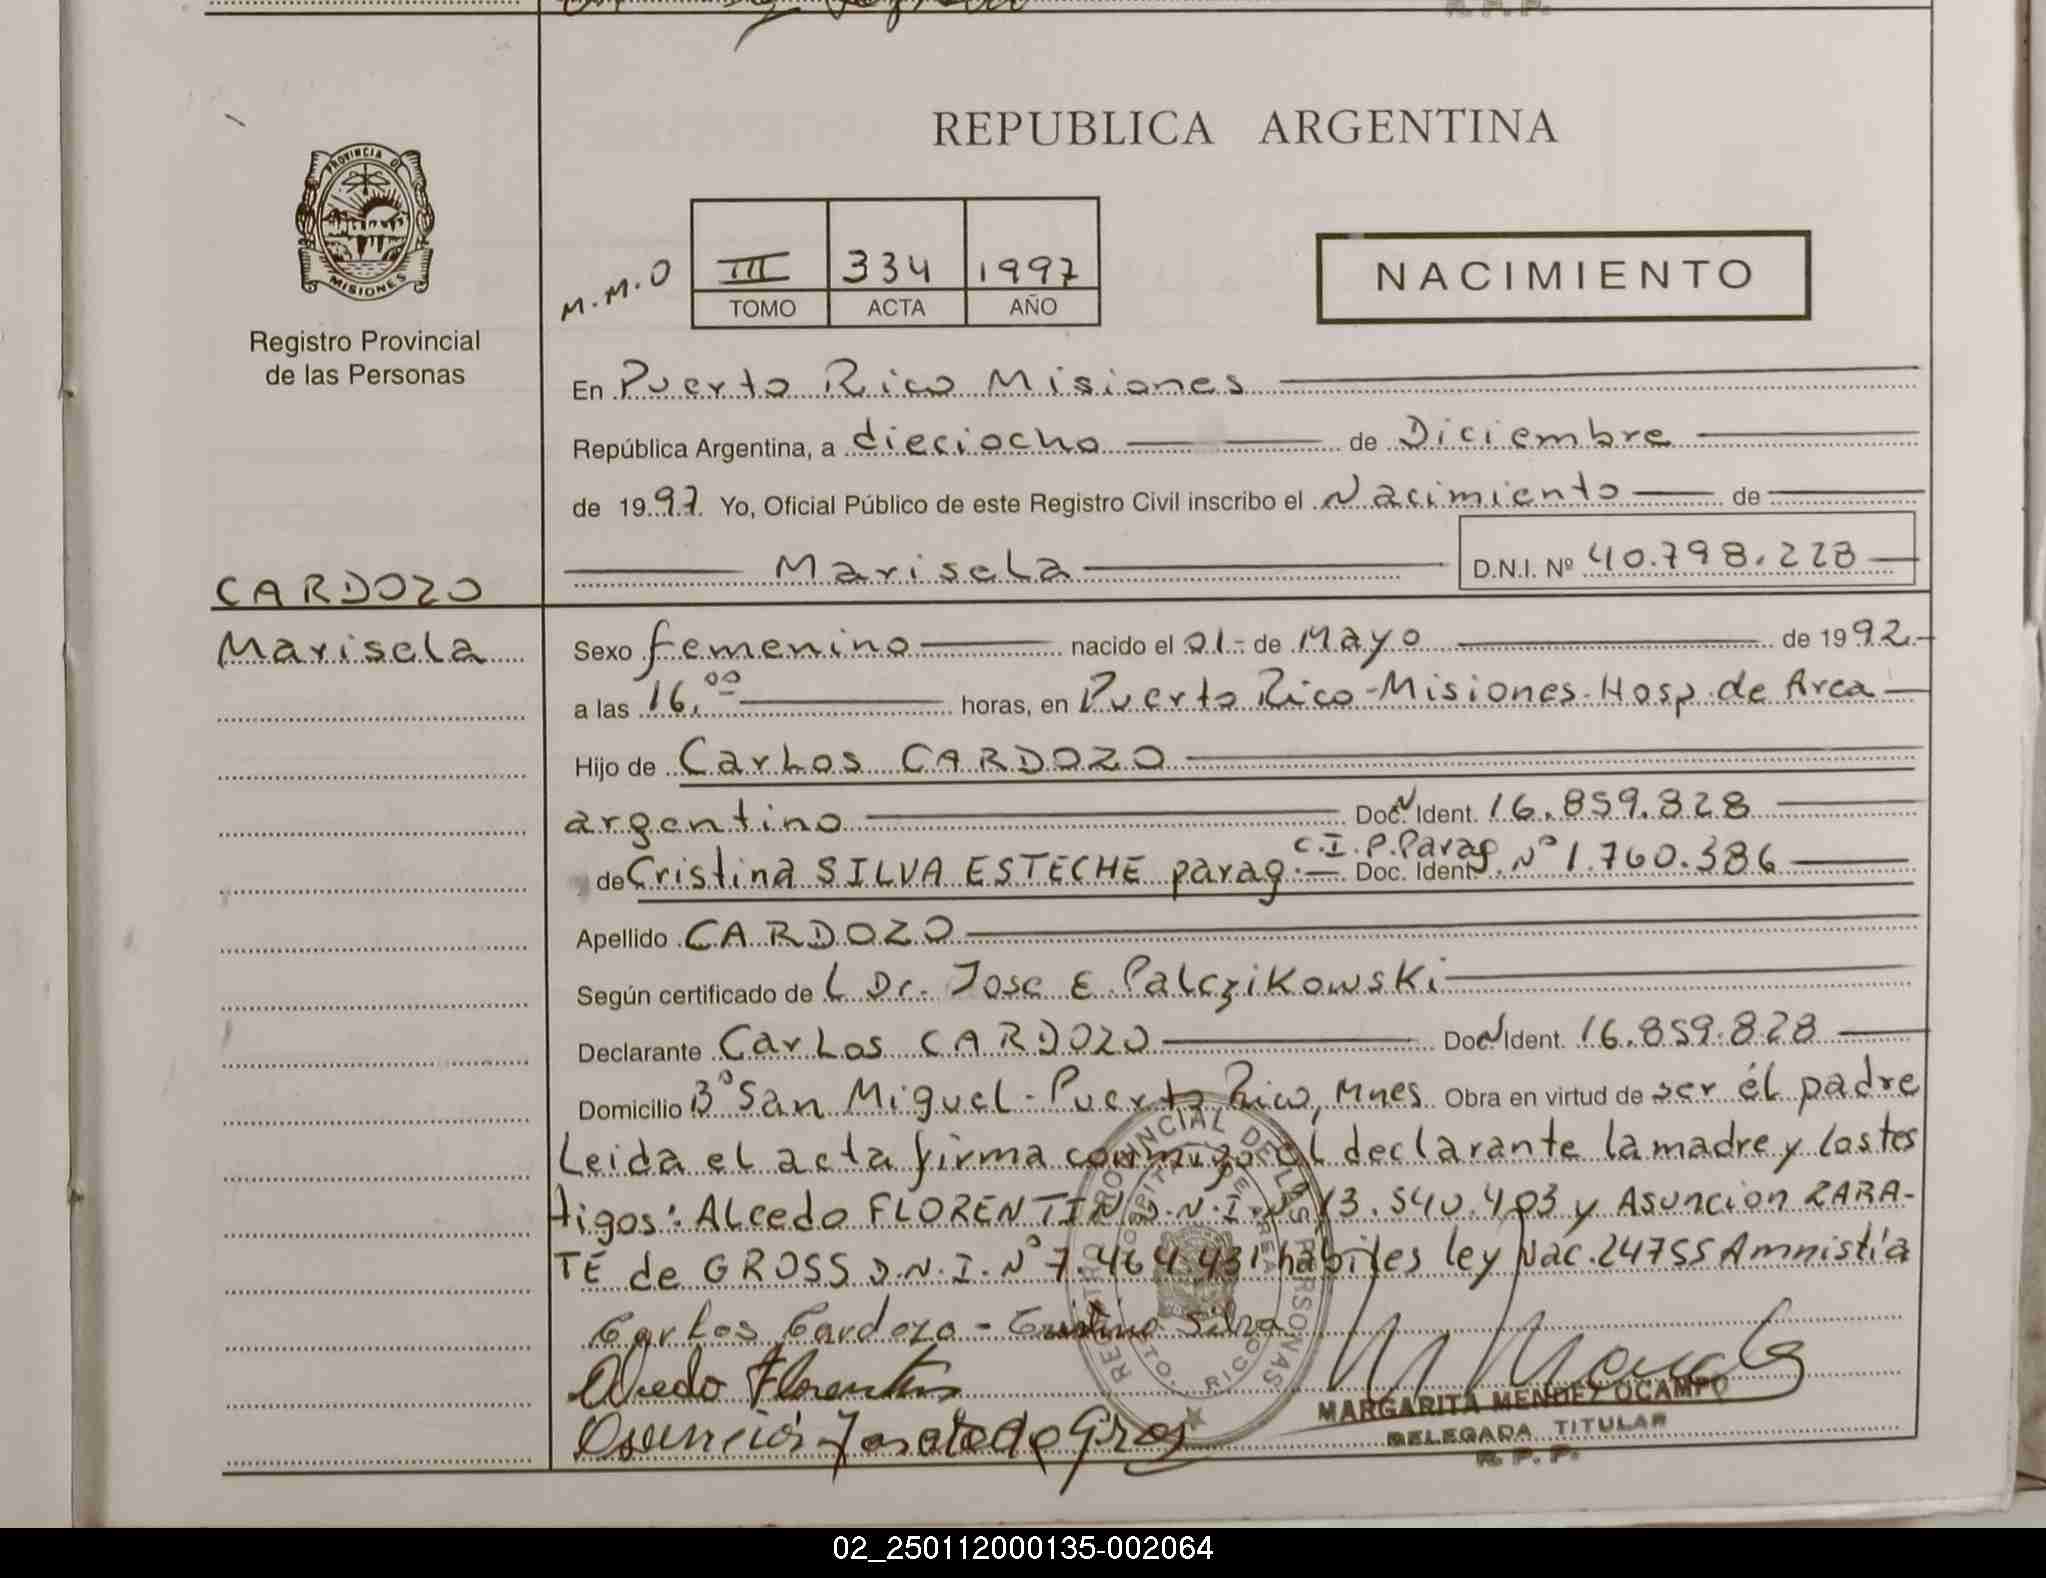 REPUBLICA ARGENTINA
PROVINCIA D
MISIONES
Registro Provincial
de las Personas
M.M.O
III 334 1997
TOMO ACTA AÑO
NACIMIENTO
En Puerto Rico Misiones
República Argentina, a dieciocho de Diciembre
de 1997. Yo, Oficial Público de este Registro Civil inscribo el Nacimiento de
Marisela D.N.I. Nº 40.798.228
CARDOZO
Marisela
Sexo femenino nacido el 01- de Mayo de 1992.
a las 16,00 horas, en Puerto Rico-Misiones-Hosp. de Area
Hijo de Carlos CARDOZO
argentino Doc. Ident. 16.859.828
de Cristina SILVA ESTECHE parag. C.I.P.Parag Doc. Ident. Nº 1.760.386
Apellido CARDOZO
Según certificado de L Dr. Jose E. Palczikowski
Declarante Carlos CARDOZO Doc. Ident. 16.859.828
Domicilio Bº San Miguel - Puerto Rico, Mnes. Obra en virtud de ser él padre
Leida el acta firma conmigo el declarante la madre y los tes
tigos: Alcedo FLORENTIN D.N.I. Nº 13.540.403 y Asuncion ZARA-
TE de GROSS D.N.I. Nº 7.464.431 hábiles ley Nac. 24755 Amnistía
Carlos Cardozo - Cristina Silva
Alcedo Florentin
Asunción Zarate de Gros
REGISTRO PROVINCIAL DE LAS PERSONAS
PTO. RICO
MARGARITA MENDEZ OCAMPO
DELEGADA TITULAR
R. P. P.
02_250112000135-002064